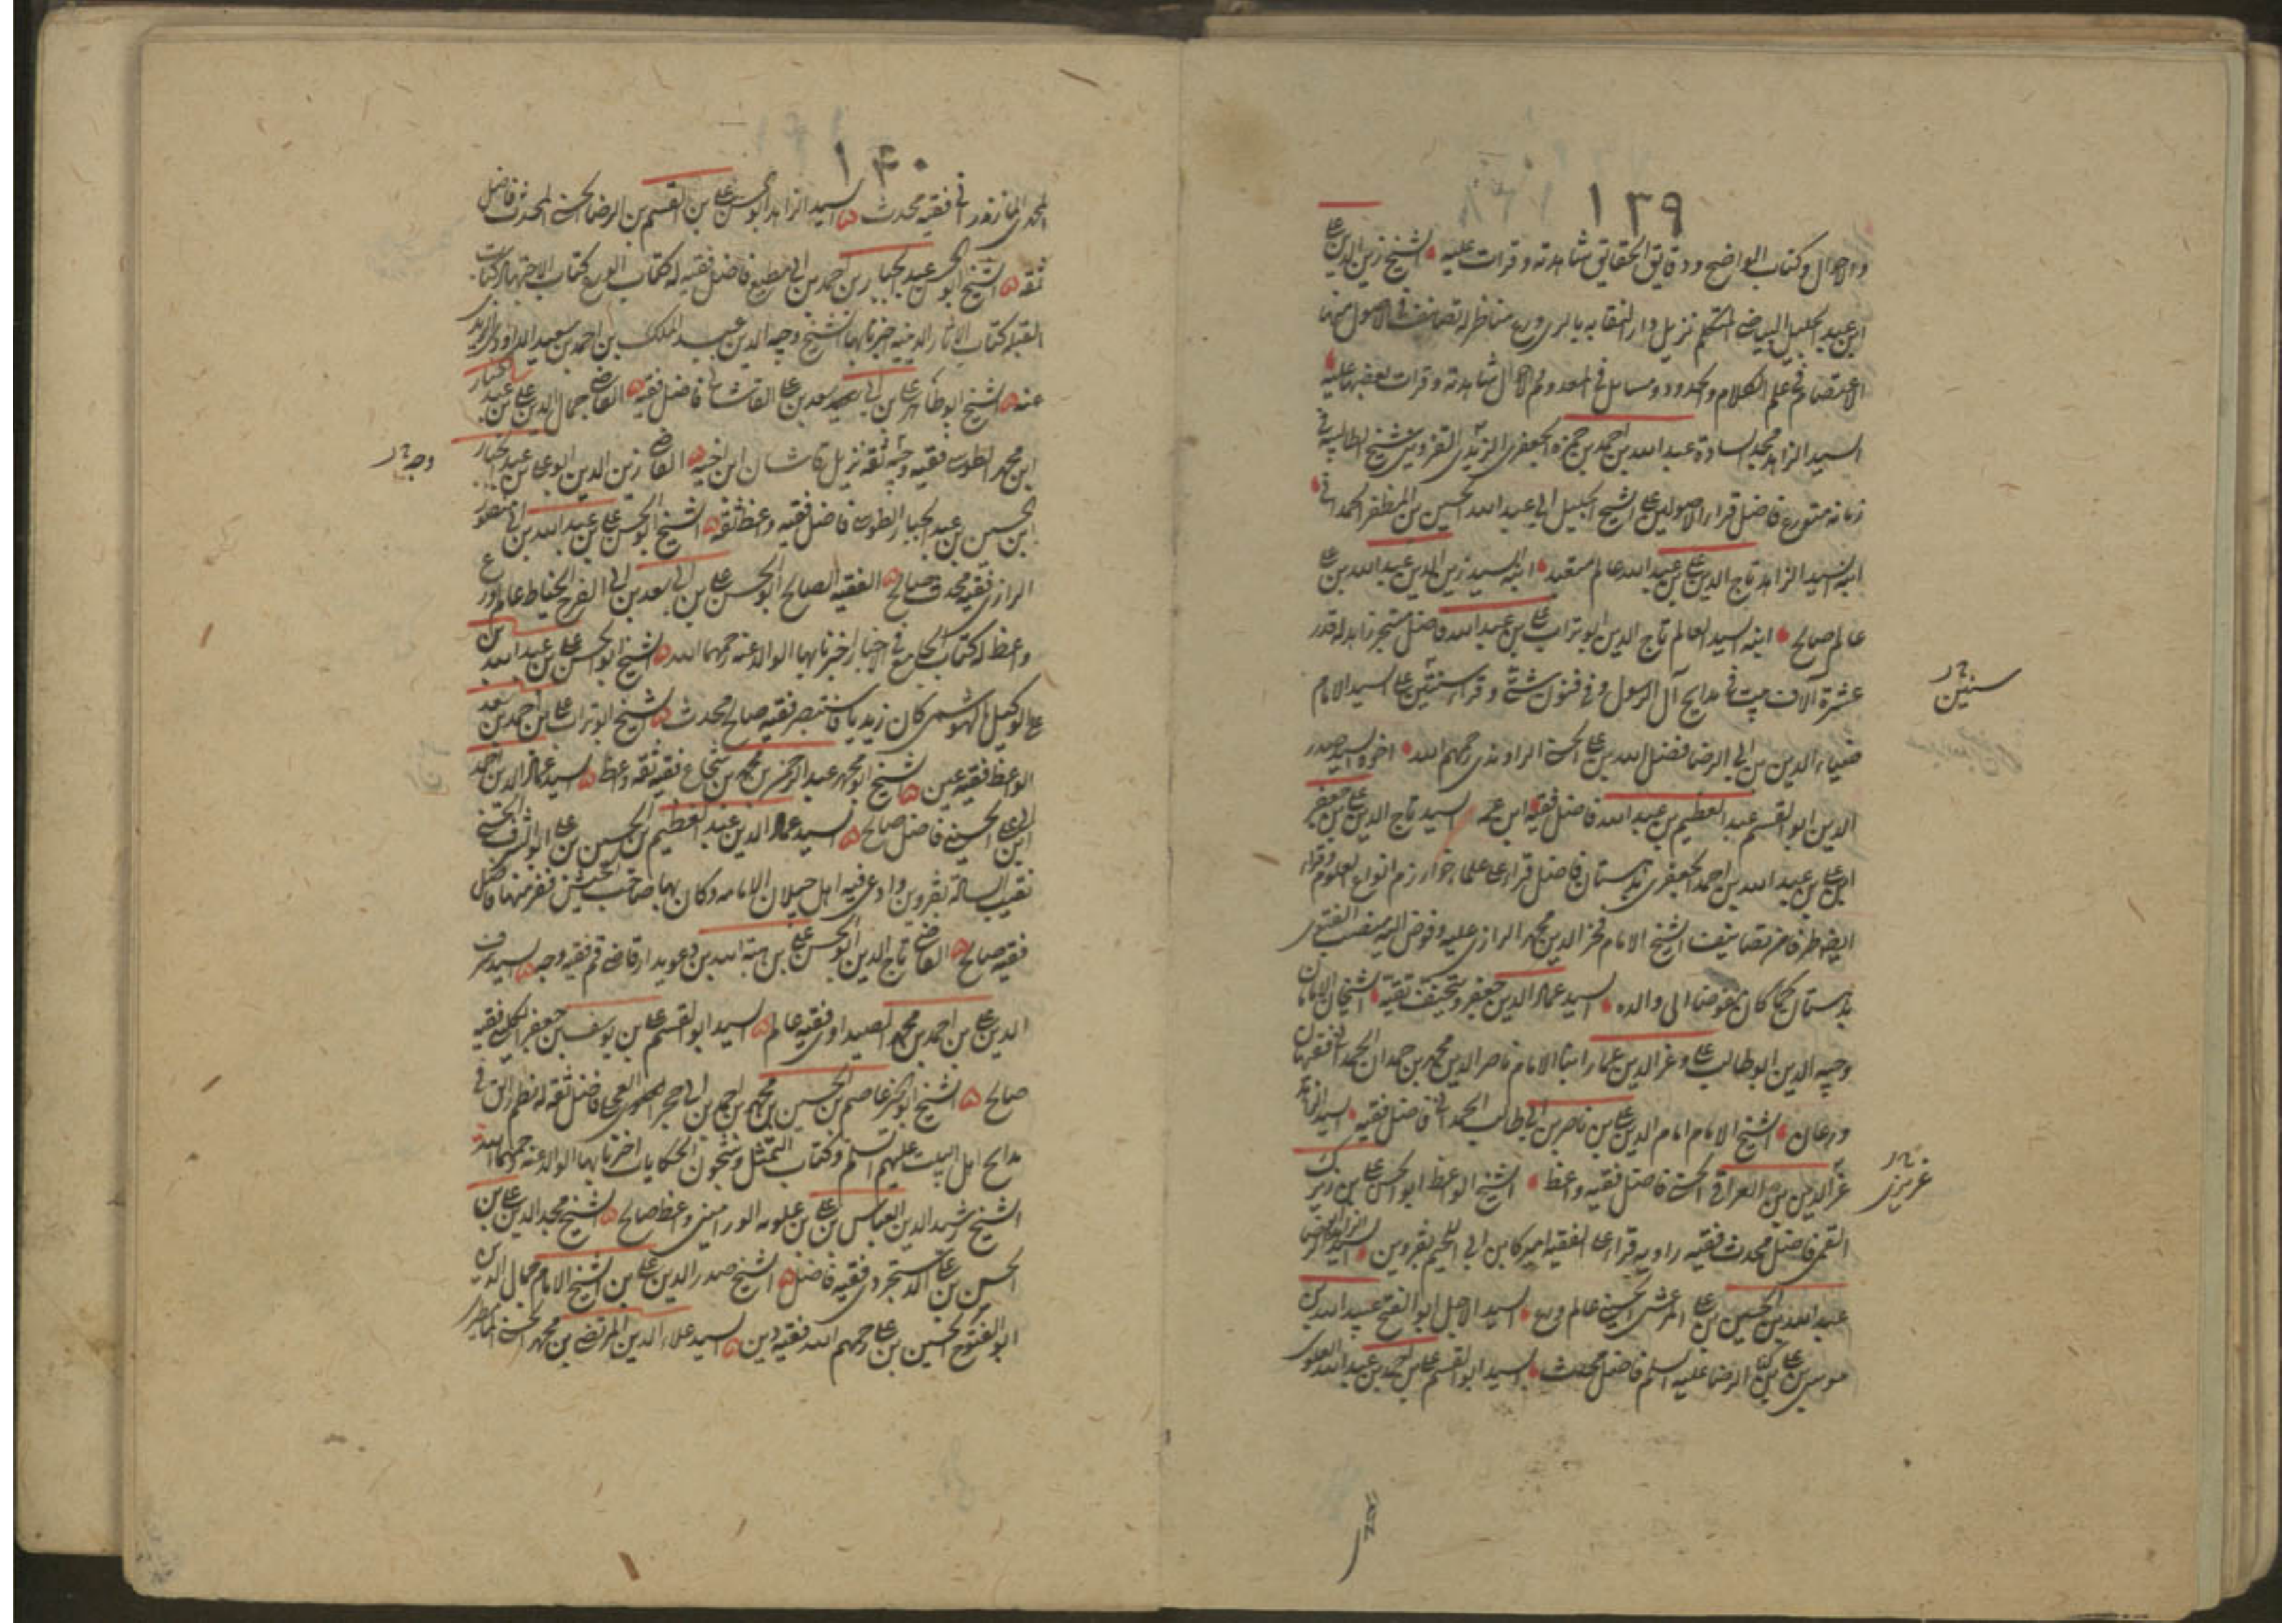 ١٣٩
والاحوال وكتاب الواضح ودقايق الحقايق شاهدته وقرات عليه الشيخ زين الدين علي
ابن عبد الجليل البياضي المتكلم نزيل دار النقابه بالري ورع مناظر له تصانيف في الاصول منها
الاعتصام في علم الكلام والحدود ومسايل في المعدوم والاحوال شاهدته وقرات بعضها عليه
السيد الزاهد مجد السادة عبد الله بن احمد بن حمزة الجعفري الزينبي القزويني شيخ الطالبيه في
زمانه متورع فاضل قرا الاصولين علي الشيخ الجليل ابي عبد الله الحسين بن المظفر الحمداني
ابنه السيد الزاهد تاج الدين علي بن عبد الله عالم متعبد ابنه السيد زين الدين عبد الله بن علي
عالم صالح ابنه السيد العالم تاج الدين ابو تراب علي بن عبد الله فاضل متبحر زاهد له قدر
عشرة آلاف بيت في مدايح آل الرسول وفي فنون شتي وقرا سنتين علي السيد الامام
سنين
ضياء الدين بن ابي الرضا فضل الله بن علي الحسني الراوندي رحمهم الله اخوه السيد صدر
الدين ابو القسم عبد العظيم بن عبد الله فاضل فقيه ابن عمه السيد تاج الدين علي بن جعفر
ابن علي بن عبد الله بن احمد الجعفري بدهستان فاضل قرا علي علماء خوارزم انواع العلوم وقراء
ايضا طرفا من تصانيف الشيخ الامام فخر الدين محمد الرازي عليه وفوض اليه منصب الفتوي
بدهستان كما كان مفوضا الى والده السيد عماد الدين جعفر وتحنف تقية الشيخان الامامان
وجيه الدين ابو طالب علي وعز الدين عمار ابنا الامام ناصر الدين محمد بن حمدان الحمداني فقيهان
ورعان الشيخ الامام امام الدين علي بن ناصر بن ابي طالب الحمداني فاضل فقيه السيد الزاهد
عز الدين بن العراقي الحسني فاضل فقيه واعظ الشيخ الواعظ ابو الحسن علي بن زيرك
القمي فاضل محدث فقيه راويه قرا علي الفقيه اميركا بن ابي اللجيم بقزوين السيد الزاهد الرضا
عبد الله بن الحسين بن علي المرعشي الحسيني عالم ورع السيد الاجل ابو الفتح عبيد الله بن
موسى بن علي بن الرضا عليه السلم فاضل محدث السيد ابو القسم علي بن احمد بن عبد الله العلوي
١٤٠
المحمدي المازندراني فقيه محدث السيد الزاهد ابو الحسن علي بن القسم بن الرضا الحسني المحدث فاضل
ثقه الشيخ ابو الحسن عبد الجبار بن احمد بن ابي مطيع فاضل فقيه له كتاب الورع كتاب الاجتهاد كتاب
القبله كتاب الاثار الدينيه اخبرنا بها الشيخ وجه الدين عبد الملك بن احمد بن سعيد الداودي الزيدي
عنه الشيخ ابو طاهر علي بن ابي سعد بن علي القاشاني فاضل فقيه القاضي جمال الدين علي بن عبد الجبار
ابن محمد الطوسي فقيه وجه ثقه نزيل قاشان ابن اخيه القاضي زين الدين ابو علي بن عبد الجبار
وجيه
ابن الحسين بن عبد الجبار الطوسي فاضل فقيه واعظ ثقه الشيخ ابو الحسن علي بن عبد الله بن ابي منصور
الرازي فقيه محدث صالح الفقيه الصالح ابو الحسن علي بن ابي سعد بن ابي الفرج الخياط عالم ورع
واعظ له كتاب الجامع في الاخبار اخبرنا بها الوالد عنه رحمهما الله الشيخ ابو الحسن علي بن عبد الله بن
علي الوكيل الهوشمي كان زيديا فاستبصر فقيه صالح محدث الشيخ ابو تراب علي بن احمد بن سعد
الواعظ فقيه عين الشيخ ابو محمد عبد الرحمن بن محمد بن شجاع فقيه ثقه واعظ السيد عماد الدين احمد
ابن ابي علي الحسيني فاضل صالح السيد عماد الدين عبد العظيم بن الحسين بن علي ابو الشرف الحسني
نقيب السادة بقزوين وادعي فيه اهل جيلان الامامه وكان بها صاحب الجيش ففر منها فاضل
فقيه صالح القاضي تاج الدين ابو الحسن علي بن هبة الله بن دعويدار قاضي قم فقيه وجه السيد شرف
الدين علي بن احمد بن محمد الصيداوي فقيه عالم السيد ابو القسم علي بن يوسف بن جعفر الكليني فقيه
صالح الشيخ ابو الخير عاصم بن الحسين بن محمد بن احمد بن ابي حجر العجلي فاضل ثقه له نظم رايق في
مدايح اهل البيت عليهم السلم وكتاب التمثل وشجون الحكايات اخبرنا بها الوالد عنه رحمهما الله
الشيخ رشيد الدين العباس بن علي بن علويه الوراميني واعظ صالح الشيخ مجد الدين علي بن
الحسن بن علي الدستجردي فقيه فاضل الشيخ صدر الدين علي بن الشيخ الامام جمال الدين
ابو الفتوح الحسين بن علي رحمهم الله فقيه دين السيد علاء الدين المرتضي بن محمد الحسني